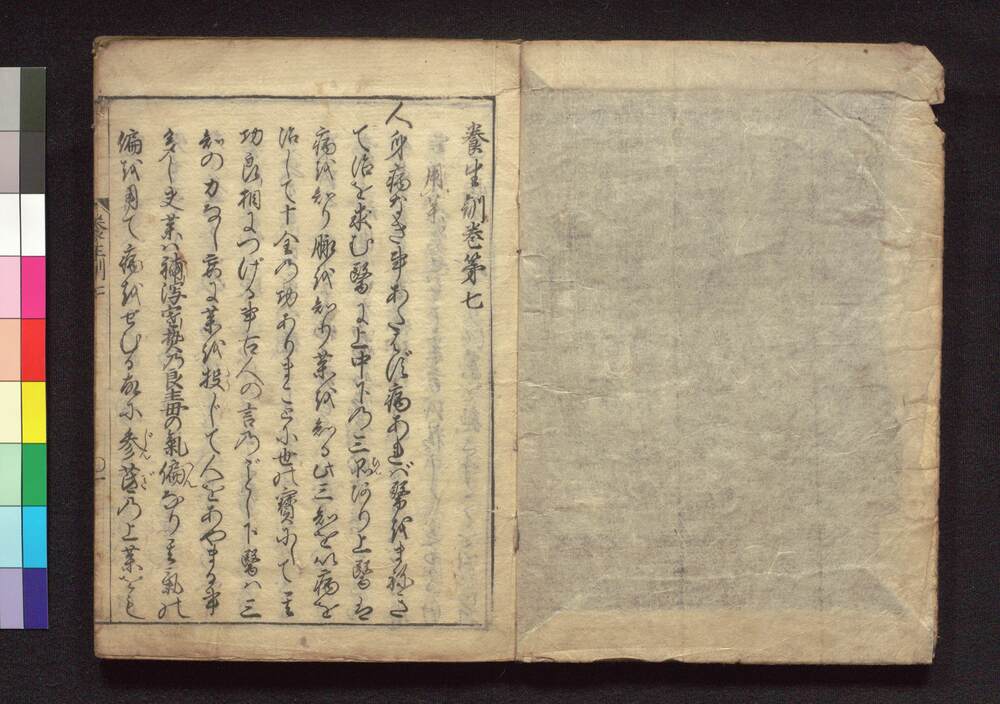 養生訓巻第七
用薬
人身病なき事あたはず病あれば醫をまねき
て治を求む醫に上中下の三品あり上醫は
病を知り脈を知り薬を知る此三知を以病を
治して十全の功ありまことに世の寶にして其
功良相につげる事古人の言のごとし下醫は三
知の力なし妄に薬を投じて人をあやまる事
多し夫薬は補瀉寒熱の良毒の氣偏なり其氣の
偏を用て病をせむる故に参芪の上薬をも
養生訓 七